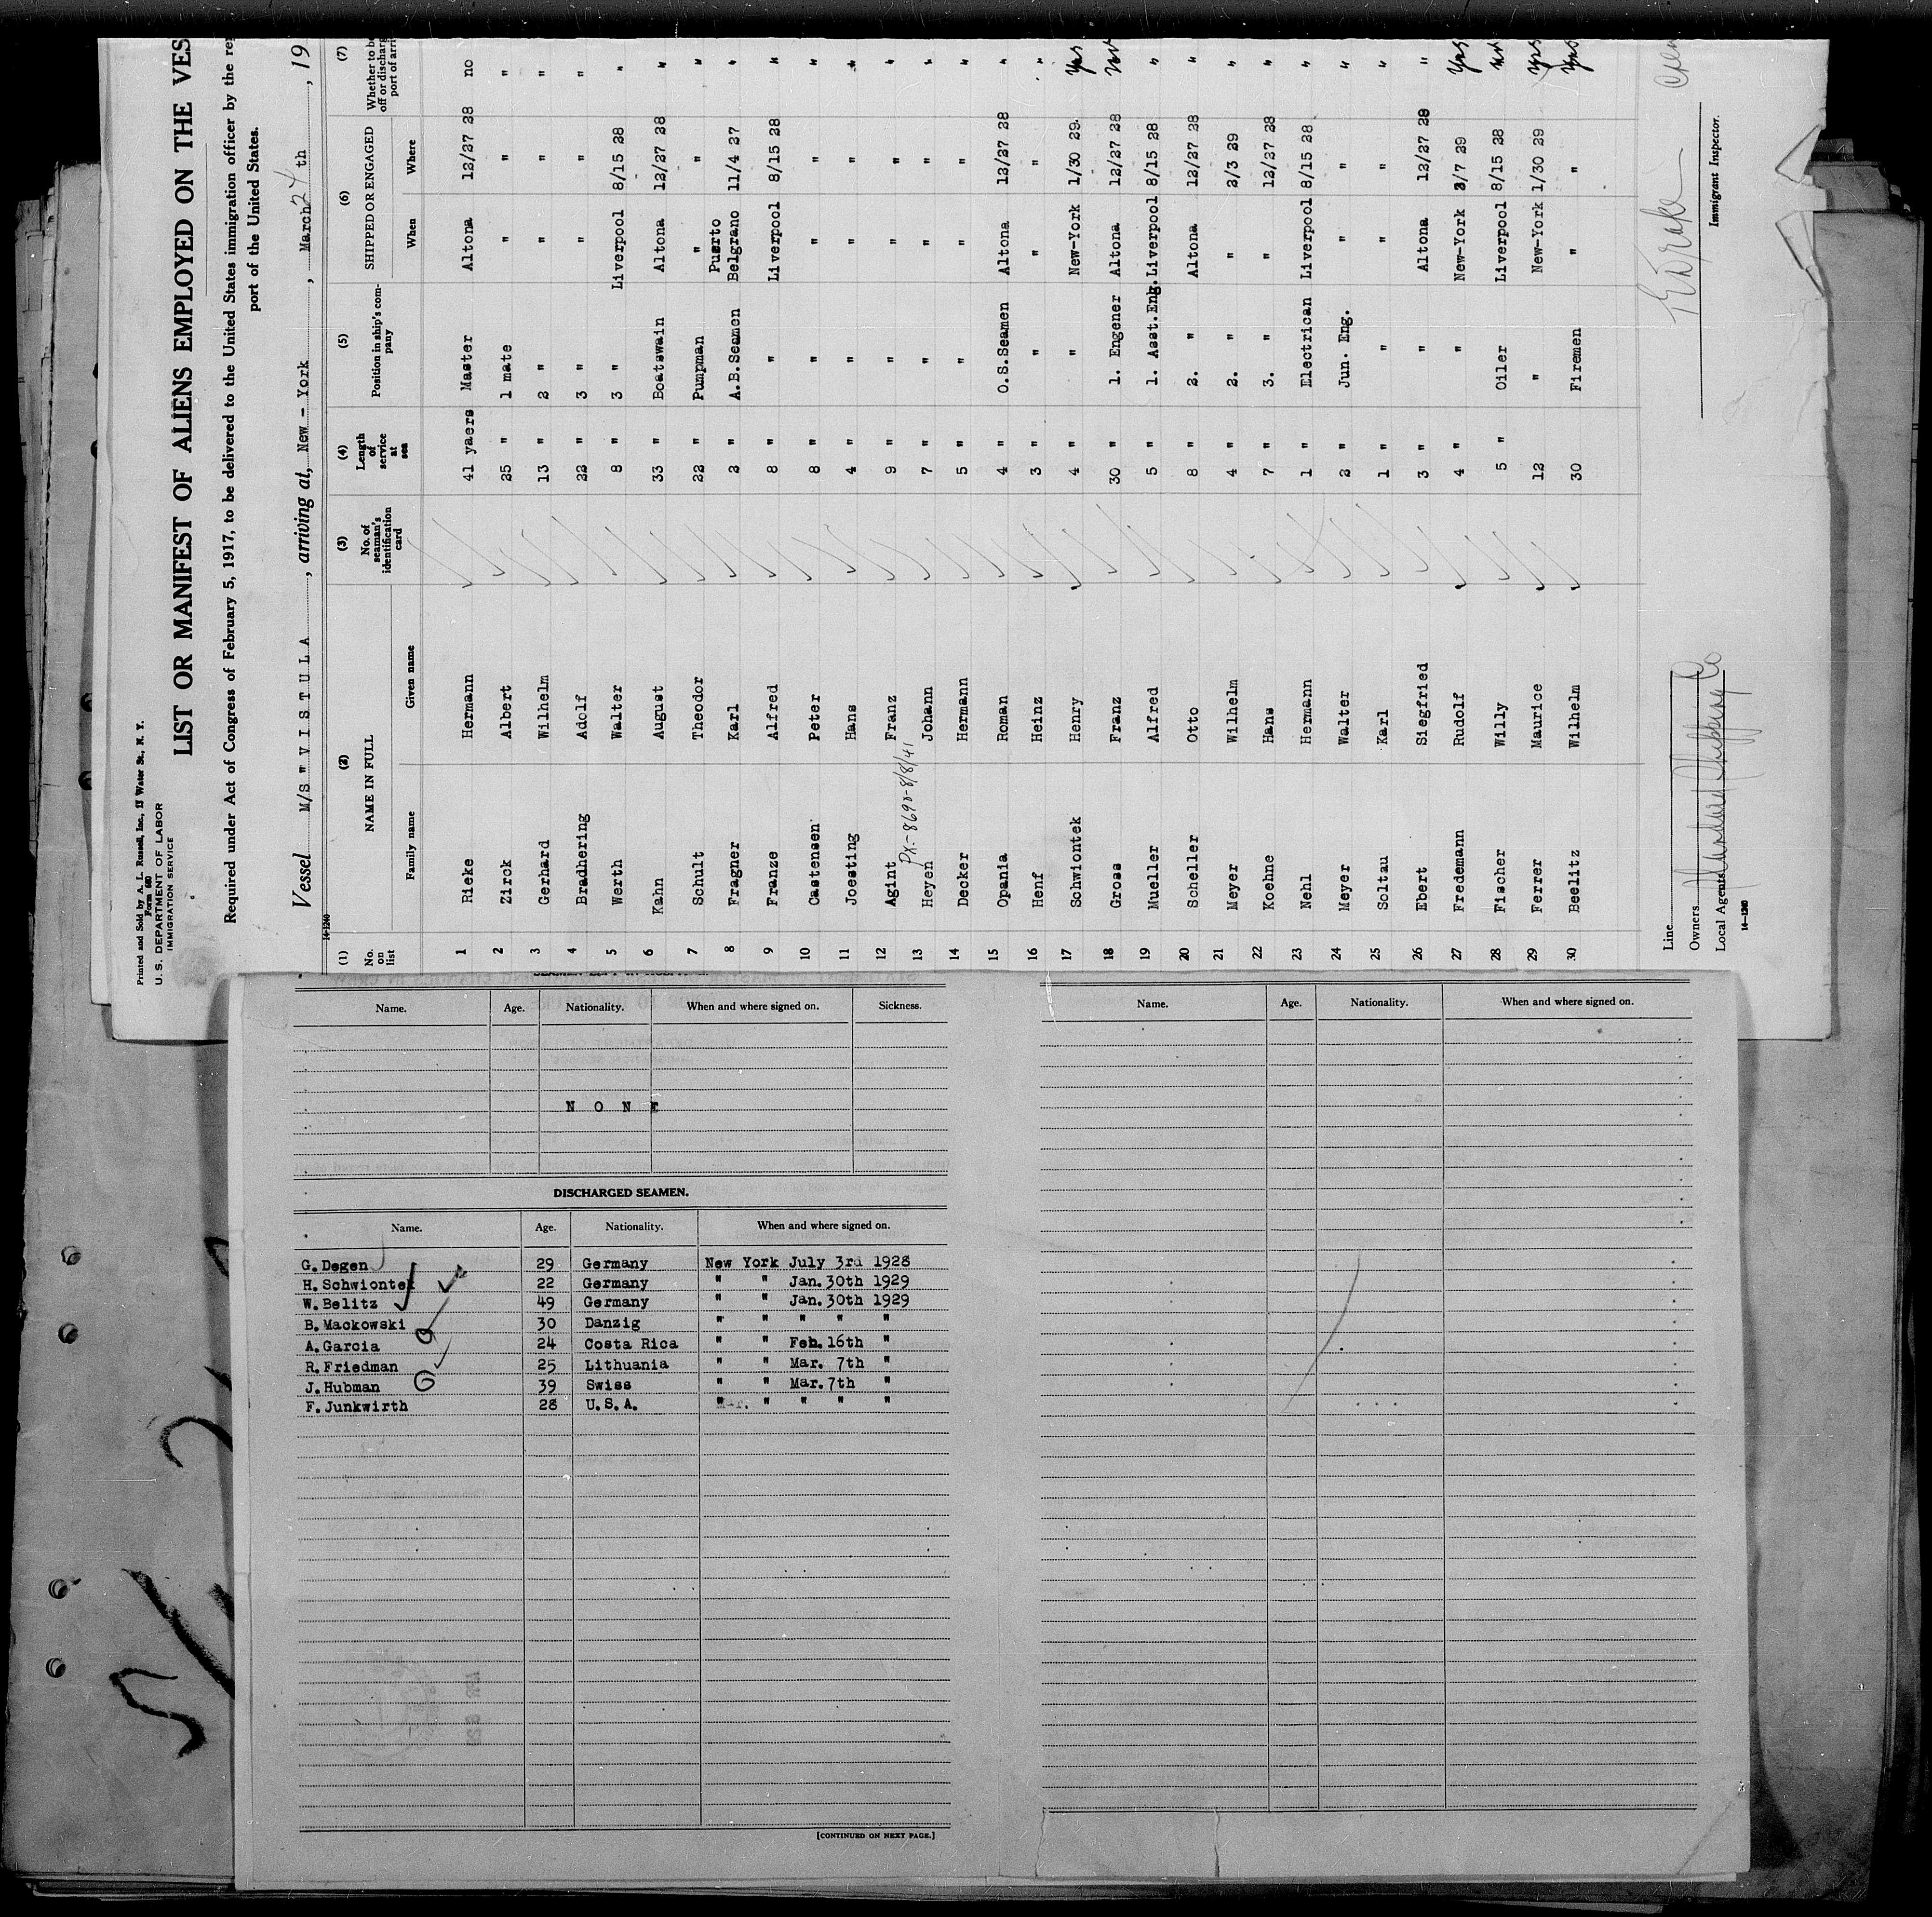 Printed and Sold by A. L. Russell, Inc., 17 Water St., N. Y.
Form 680
U. S. DEPARTMENT OF LABOR
IMMIGRATION SERVICE
LIST OR MANIFEST OF ALIENS EMPLOYED ON THE VES
Required under Act of Congress of February 5, 1917, to be delivered to the United States immigration officer by the re
port of the United States.
Vessel M/S " V I S T U L A , arriving at, New - York , March 24th , 19
14-1240
(1) (2) (3) (4) (5) (6) (7)
No. on list NAME IN FULL No. of seaman's identification card Length of service at sea Position in ship's company SHIPPED OR ENGAGED Whether to be off or discharg port of arri
Family name Given name When Where
1 Rieke Hermann 41 yaers Master Altona 12/27 28 no
2 Zirck Albert 25 " 1 mate " " "
3 Gerhard Wilhelm 13 " 2 " " " "
4 Bradhering Adolf 22 " 3 " " " "
5 Werth Walter 8 " 3 " Liverpool 8/15 28 "
6 Kahn August 33 " Boatswain Altona 12/27 28 "
7 Schult Theodor 22 " Pumpman " " "
8 Fragner Karl 2 " A.B.Seamen Puerto Belgrano 11/4 27 "
9 Franze Alfred 8 " " Liverpool 8/15 28 "
10 Castensen Peter 8 " " " " "
11 Joesting Hans 4 " " " " "
12 Agint Franz 9 " " " " "
Px.-8690-8/8/41
13 Heyen Johann 7 " " " " "
14 Decker Hermann 5 " " " " "
15 Opania Roman 4 " O.S.Seamen Altona 12/27 28 "
16 Henf Heinz 3 " " " " "
17 Schwiontek Henry 4 " " New-York 1/30 29. Yes
18 Gross Franz 30 " 1. Engener Altona 12/27 28 no
19 Mueller Alfred 5 " 1. Asst.Eng. Liverpool 8/15 28 "
20 Scheller Otto 8 " 2. " Altona 12/27 28 "
21 Meyer Wilhelm 4 " 2. " " 2/3 29 "
22 Koehne Hans 7 " 3. " " 12/27 28 "
23 Nehl Hermann 1 " Electrican Liverpool 8/15 28 "
24 Meyer Walter 2 " Jun. Eng. " " "
25 Soltau Karl 1 " " " " "
26 Ebert Siegfried 3 " " Altona 12/27 28 "
27 Fredemann Rudolf 4 " " New-York 3/7 29 Yes
28 Fischer Willy 5 " Oiler Liverpool 8/15 28 no
29 Ferrer Maurice 12 " New-York 1/30 29 yes
30 Beelitz Wilhelm 30 Firemen " " yes
Line
Owners
Local Agents Standard Shipping Co
14-1240
Immigrant Inspector.
Name. Age. Nationality. When and where signed on. Sickness.
N O N E
DISCHARGED SEAMEN.
Name. Age. Nationality. When and where signed on.
G. Degen 29 Germany New York July 3rd 1928
H. Schwiontek 22 Germany " " Jan. 30th 1929
W. Belitz 49 Germany " " Jan. 30th 1929
B. Mackowski 30 Danzig " " " " "
A. Garcia 24 Costa Rica " " Feb. 16th "
R. Friedman 25 Lithuania " " Mar. 7th "
J. Hubman 39 Swiss " " Mar. 7th "
F. Junkwirth 28 U.S.A. " " " " "
[CONTINUED ON NEXT PAGE.]
Name. Age. Nationality. When and where signed on.